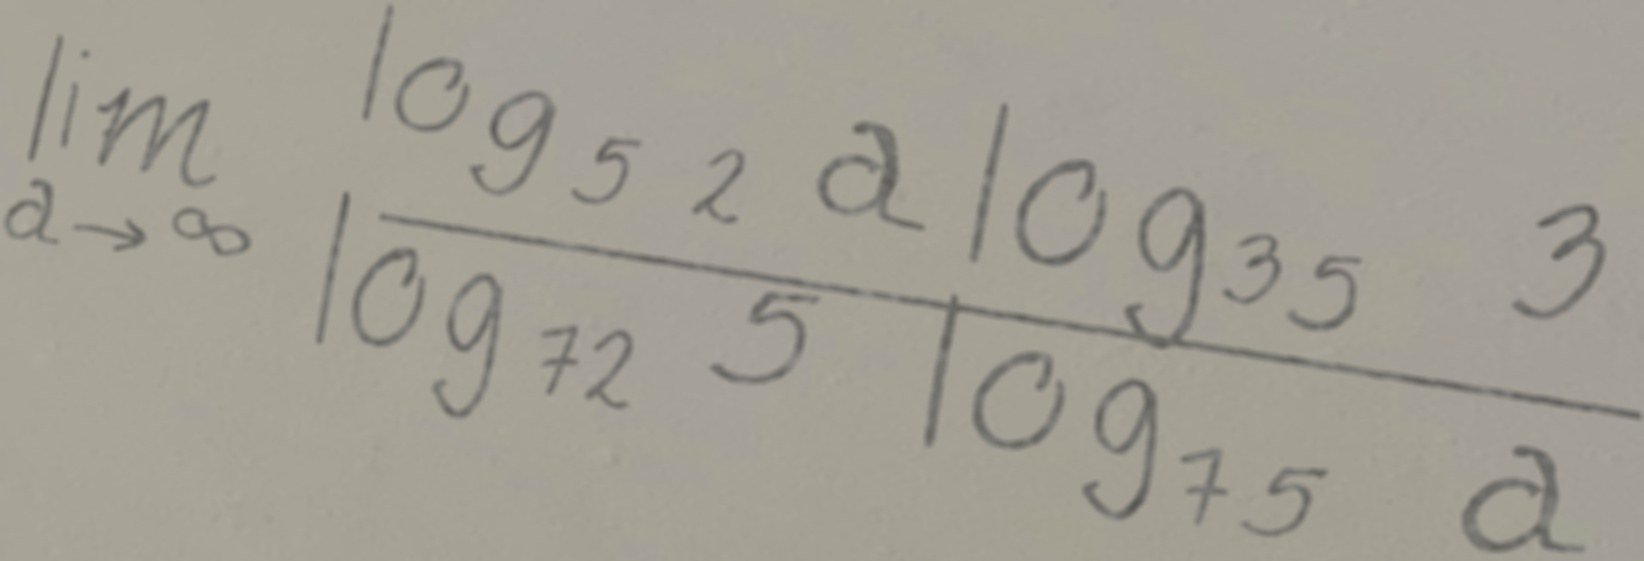 lim a→∞ (log_52 a log_35 3) / (log_72 5 log_75 a)